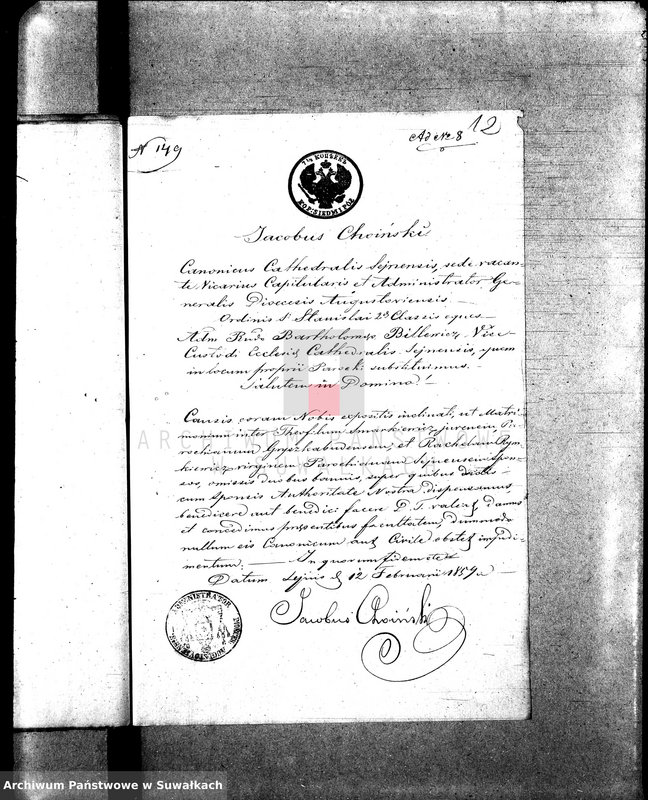 N 149
Ad No 8
12
7½ KOPIEEK
KOP: SIEDM I PÓŁ
Jacobus Choiński
Canonicus Cathedralis Sejnensis, sede vacan-
te Vicarius Capitularis et Administrator Ge-
neralis Dioecesis Augustoviensis
Ordinis St Stanislai 2ae Classis eques
Adm Rndo Bartholomeo Billewicz Vice-
Custodi Ecclesiae Cathedralis Sejnensis, quem
in locum proprii Parochi substituimus.
Salutem in Domino!
Causis coram Nobis expositis inclinati, ut Matri-
monium inter Theophilum Smarkiewicz juvenem Pa-
rochianum Gryszkabudensem, et Rachelam Rym-
kiewicz virginem Parochianam Sejnensem spon-
sos, omissis duobus bannis, super quibus dictis-
cum sponsis Authoritate Nostra dispensamus,
benedicere aut benedici facere D. T. valeat damus
et concedimus praesentibus facultatem, dummodo
nullum eis Canonicum aut Civile obstet impedi-
mentum. In quorum fidem etc
Datum Sejnis d. 12 Februarii 1859 a
Jacobus Choiński
ADMINISTRATOR
ARCHIWUM PAŃSTWOWE
W SUWAŁKACH
Archiwum Państwowe w Suwałkach